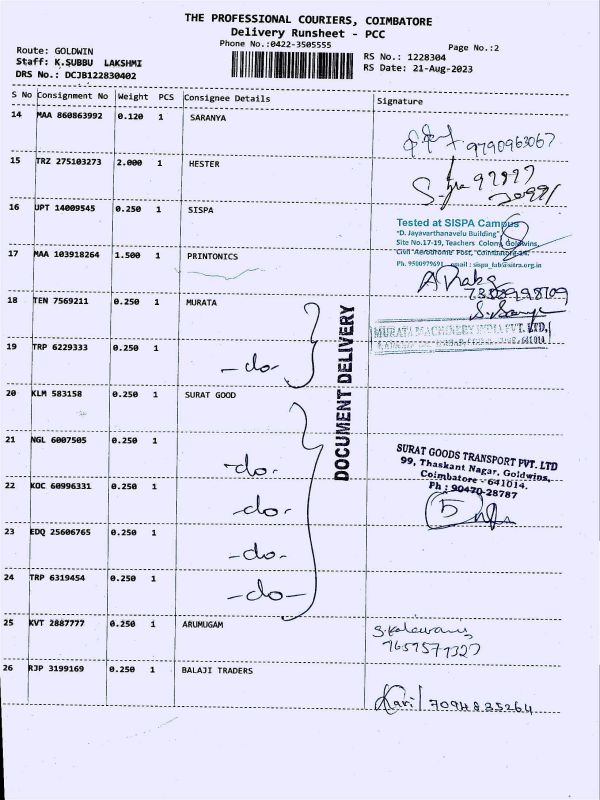 THE PROFESSIONAL COURIERS, COIMBATORE
Delivery Runsheet - PCC
Phone No.:0422-3505555
Page No.:2
Route: GOLDWIN
Staff: K.SUBBU LAKSHMI
DRS No.: DCJB122830402
RS No.: 1228304
RS Date: 21-Aug-2023
S No Consignment No Weight PCS Consignee Details Signature
14 MAA 860863992 0.120 1 SARANYA
9790963067
15 TRZ 275103273 2.000 1 HESTER
16 UPT 14009545 0.250 1 SISPA
Tested at SISPA Campus
"D. Jayavarthanavelu Building"
Site No.17-19, Teachers Colony, Goldwins,
Civil Aerodrome Post, Coimbatore-14.
Ph. 9500979691 email : sispa_lab@sitra.org.in
17 MAA 103918264 1.500 1 PRINTONICS
18 TEN 7569211 0.250 1 MURATA
MURATA MACHINERY INDIA PVT. LTD.
19 TRP 6229333 0.250 1
-do-
DOCUMENT DELIVERY
20 KLM 583158 0.250 1 SURAT GOOD
21 NGL 6007505 0.250 1
-do-
SURAT GOODS TRANSPORT PVT. LTD
99, Thaskant Nagar, Goldwins,
Coimbatore - 641014.
Ph : 90470-28787
22 KOC 60996331 0.250 1
-do-
5
23 EDQ 25606765 0.250 1
-do-
24 TRP 6319454 0.250 1
-do-
25 KVT 2887777 0.250 1 ARUMUGAM
26 RJP 3199169 0.250 1 BALAJI TRADERS
7094835264